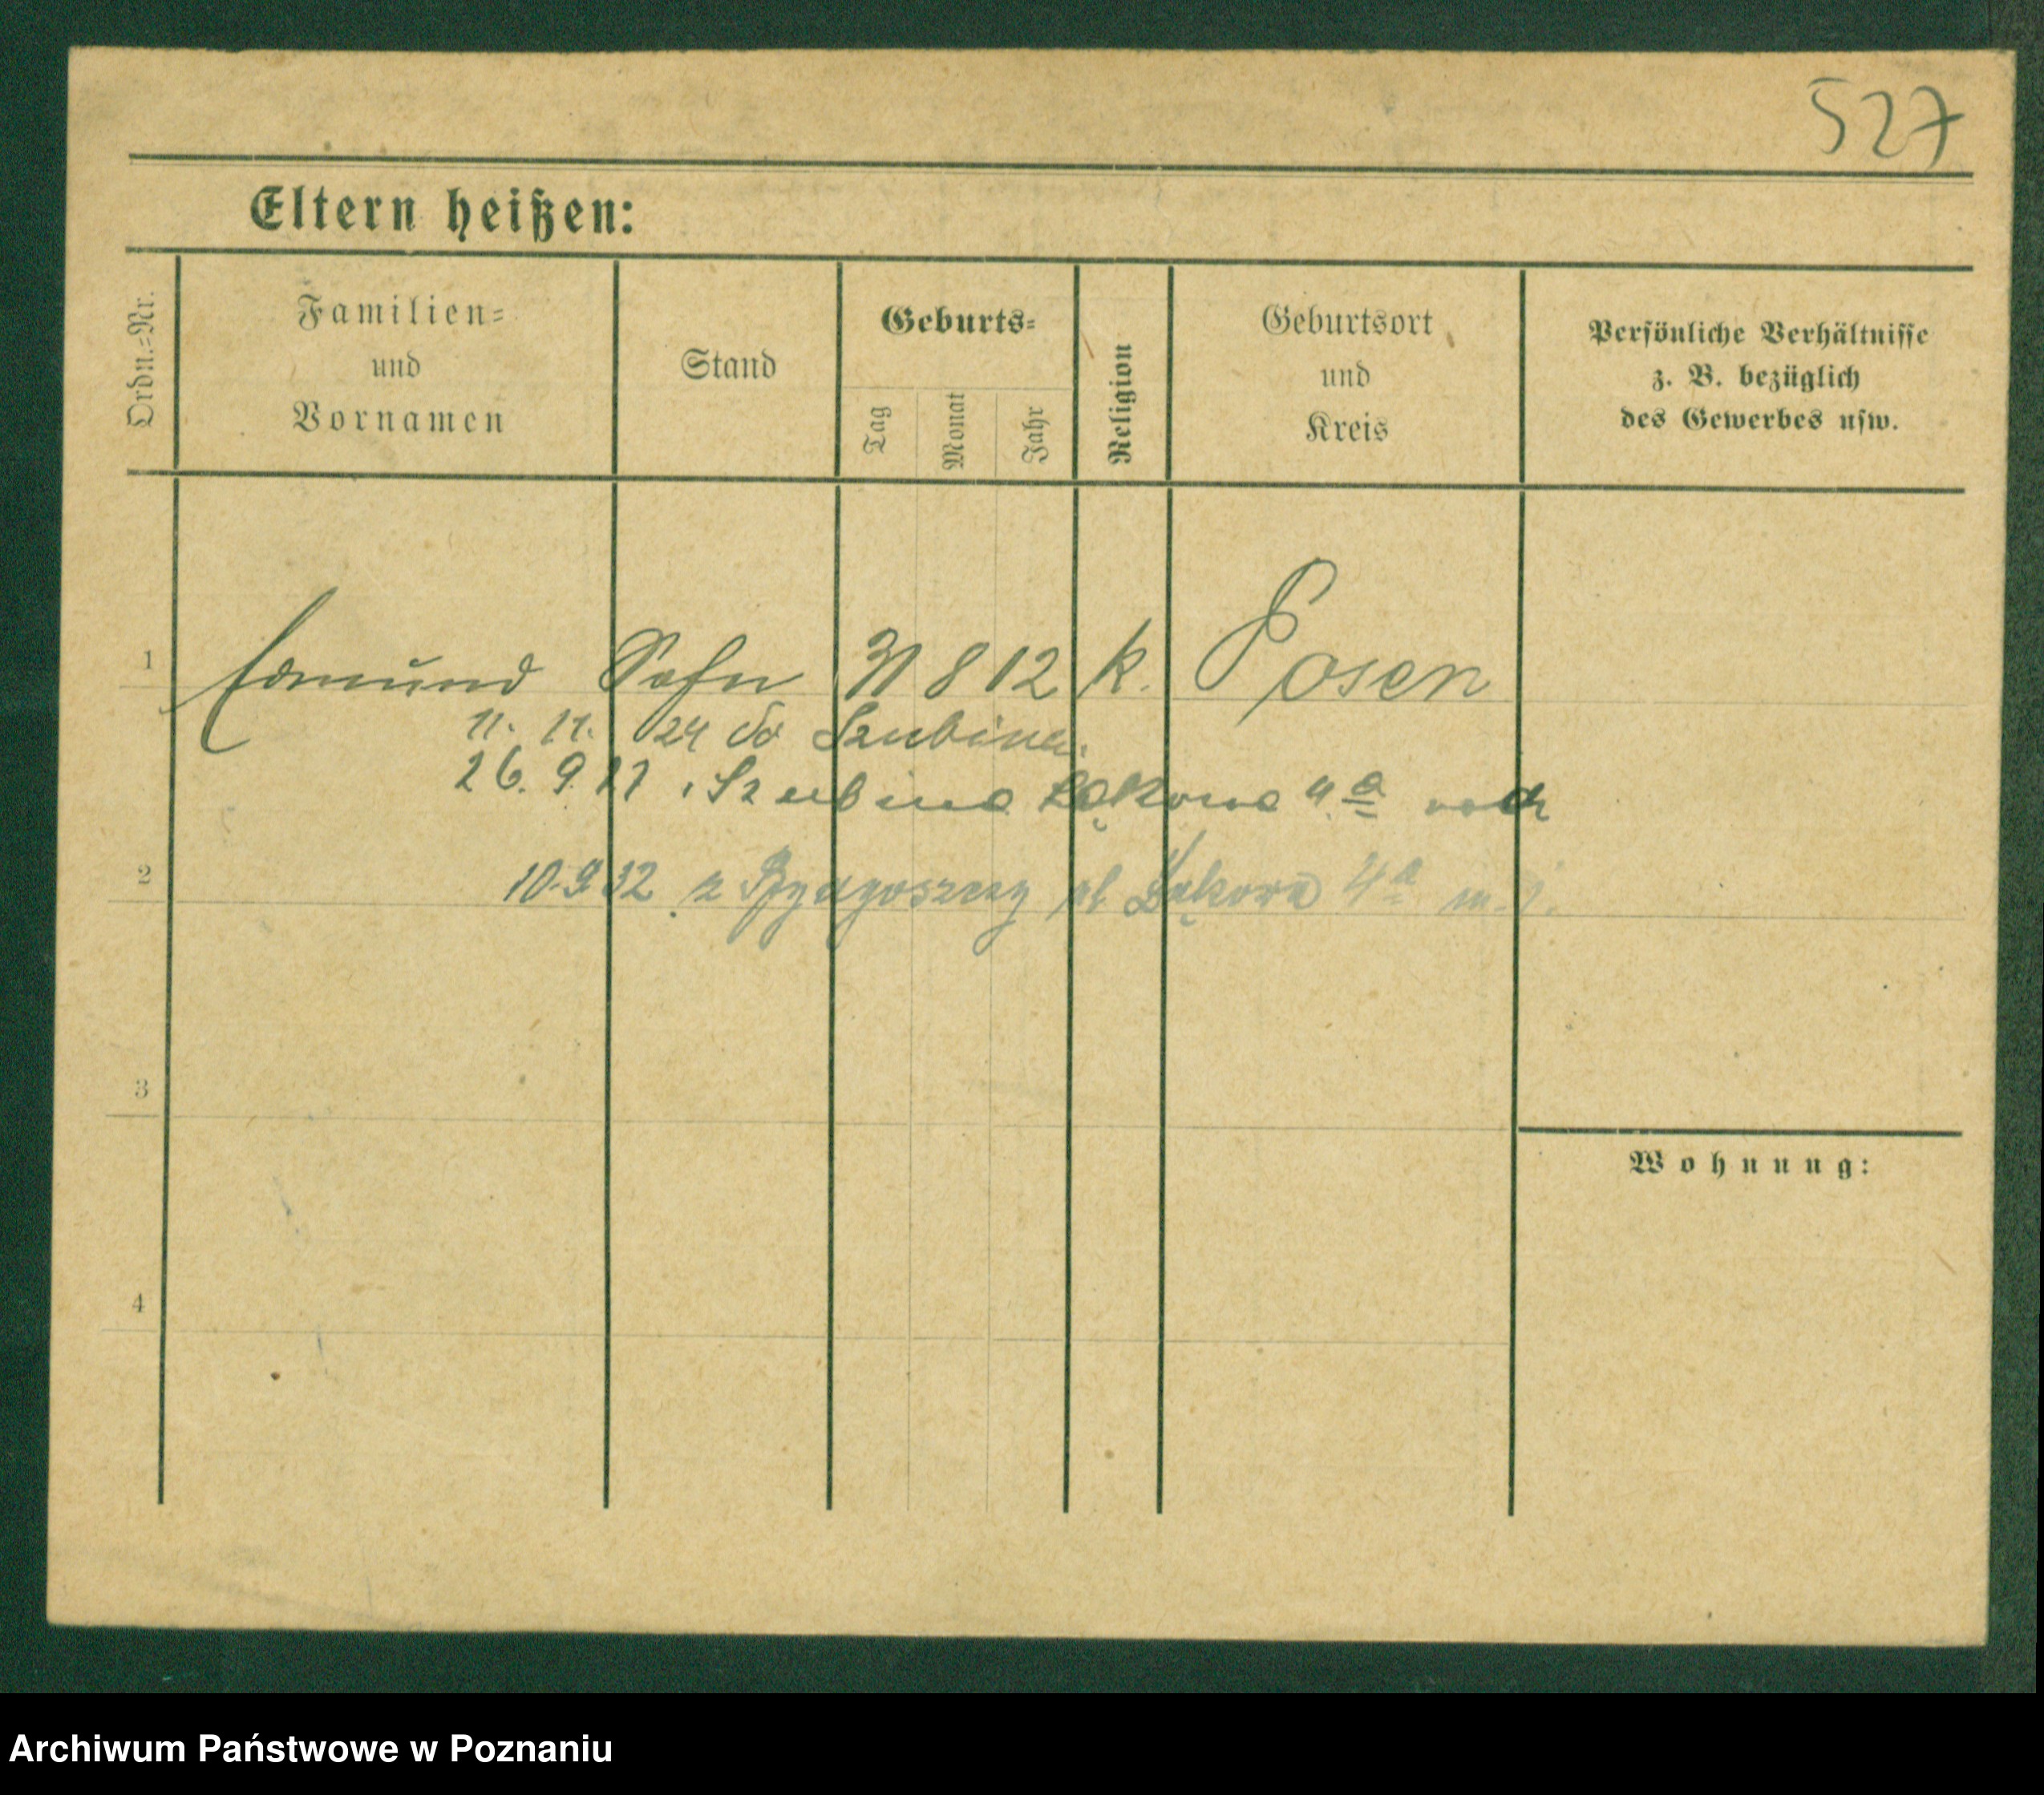 527
Eltern heißen:
Ordn.=Nr.
Familien=
und
Vornamen
Stand
Geburts=
Tag
Monat
Jahr
Religion
Geburtsort
und
Kreis
Persönliche Verhältnisse
z. B. bezüglich
des Gewerbes usw.
1 Edmund Sohn 31 8 12 k. Posen
11. 11. 24 do Szubina.
26. 9. Szubina Łąkowa 4 a
2
10.9.32 z Bydgoszczy ul Łąkowa 4 a m.
3
Wohnung:
4
Archiwum Państwowe w Poznaniu